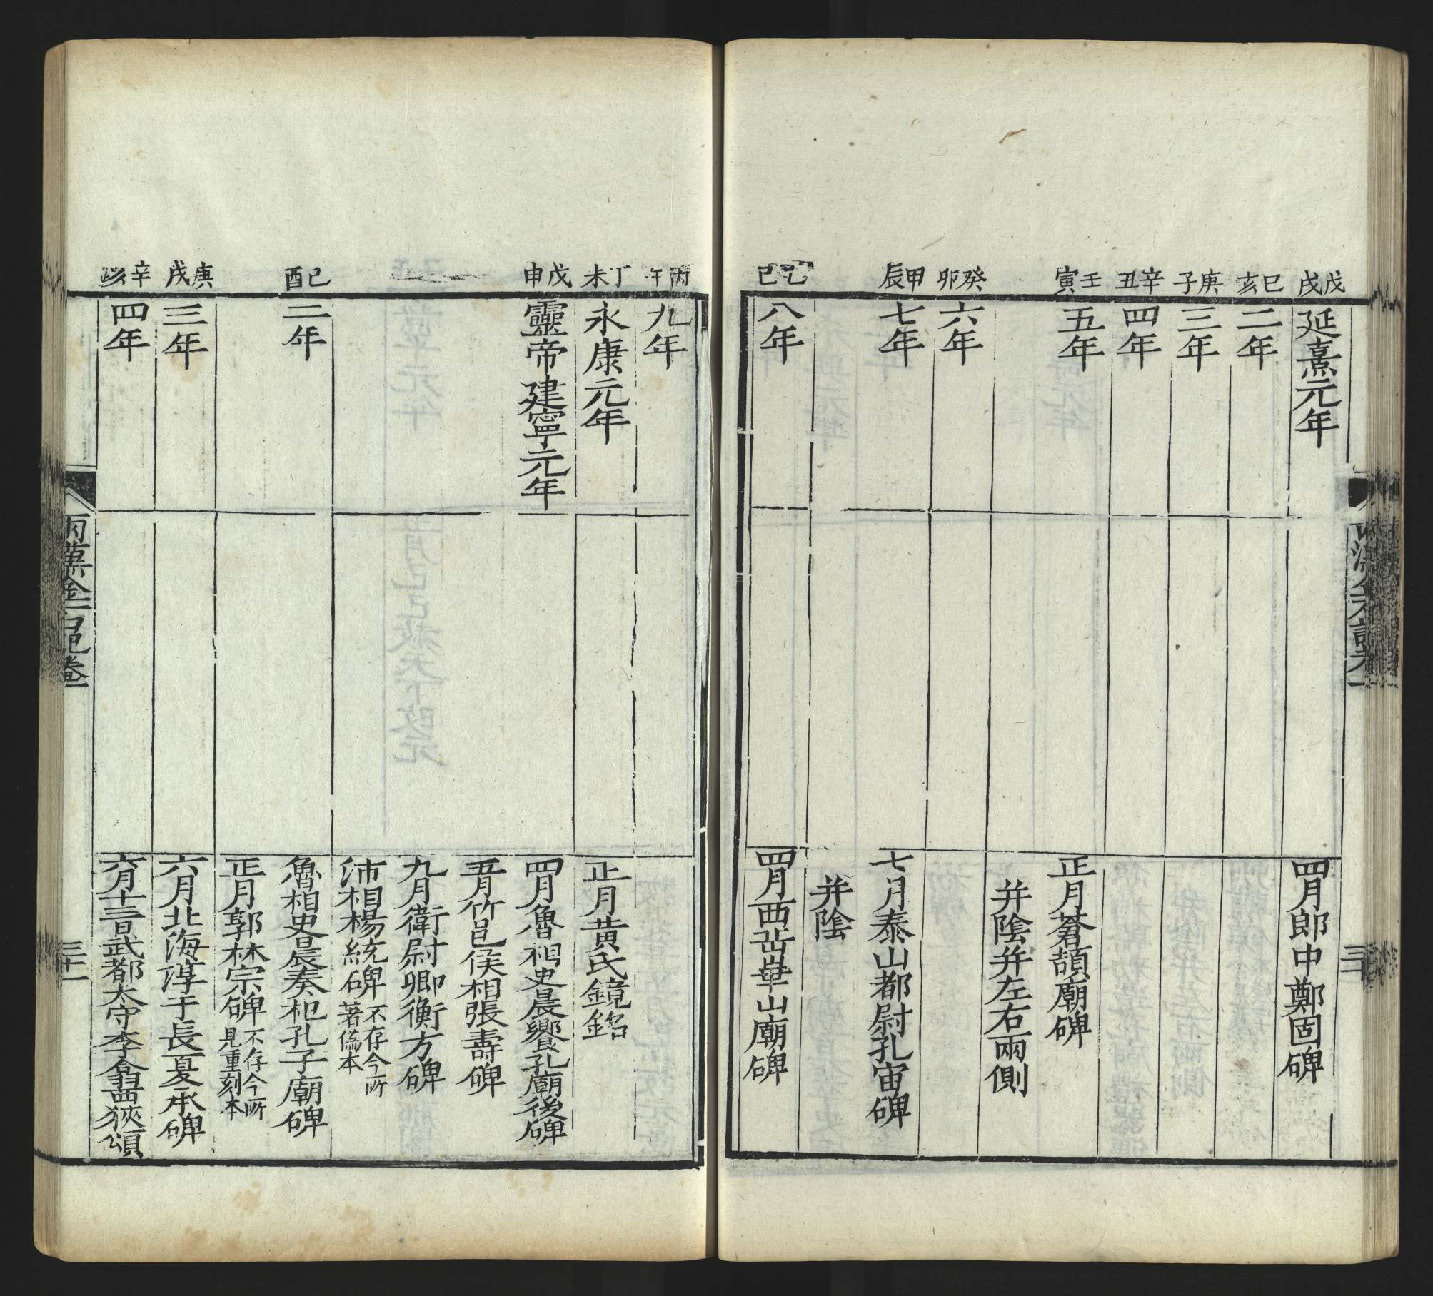 戊戌
延熹元年
四月郎中鄭固碑
己亥
二年
庚子
三年
辛丑
四年
壬寅
五年
正月蒼頡廟碑
并陰并左右兩側
癸卯
六年
甲辰
七年
七月泰山都尉孔宙碑
并陰
乙巳
八年
四月西嶽崋山廟碑
丙午
九年
丁未
永康元年
正月黃氏鏡銘
戊申
靈帝建寧元年
四月魯相史晨饗孔廟後碑
五月竹邑侯相張壽碑
九月衛尉卿衡方碑
沛相楊統碑不存今所
著僞本
己酉
二年
魯相史晨奏祀孔子廟碑
正月郭林宗碑不存今所
見重刻本
庚戌
三年
六月北海淳于長夏承碑
辛亥
四年
六月十三日武都太守李翕西狹頌
兩漢金石記卷一
三十一